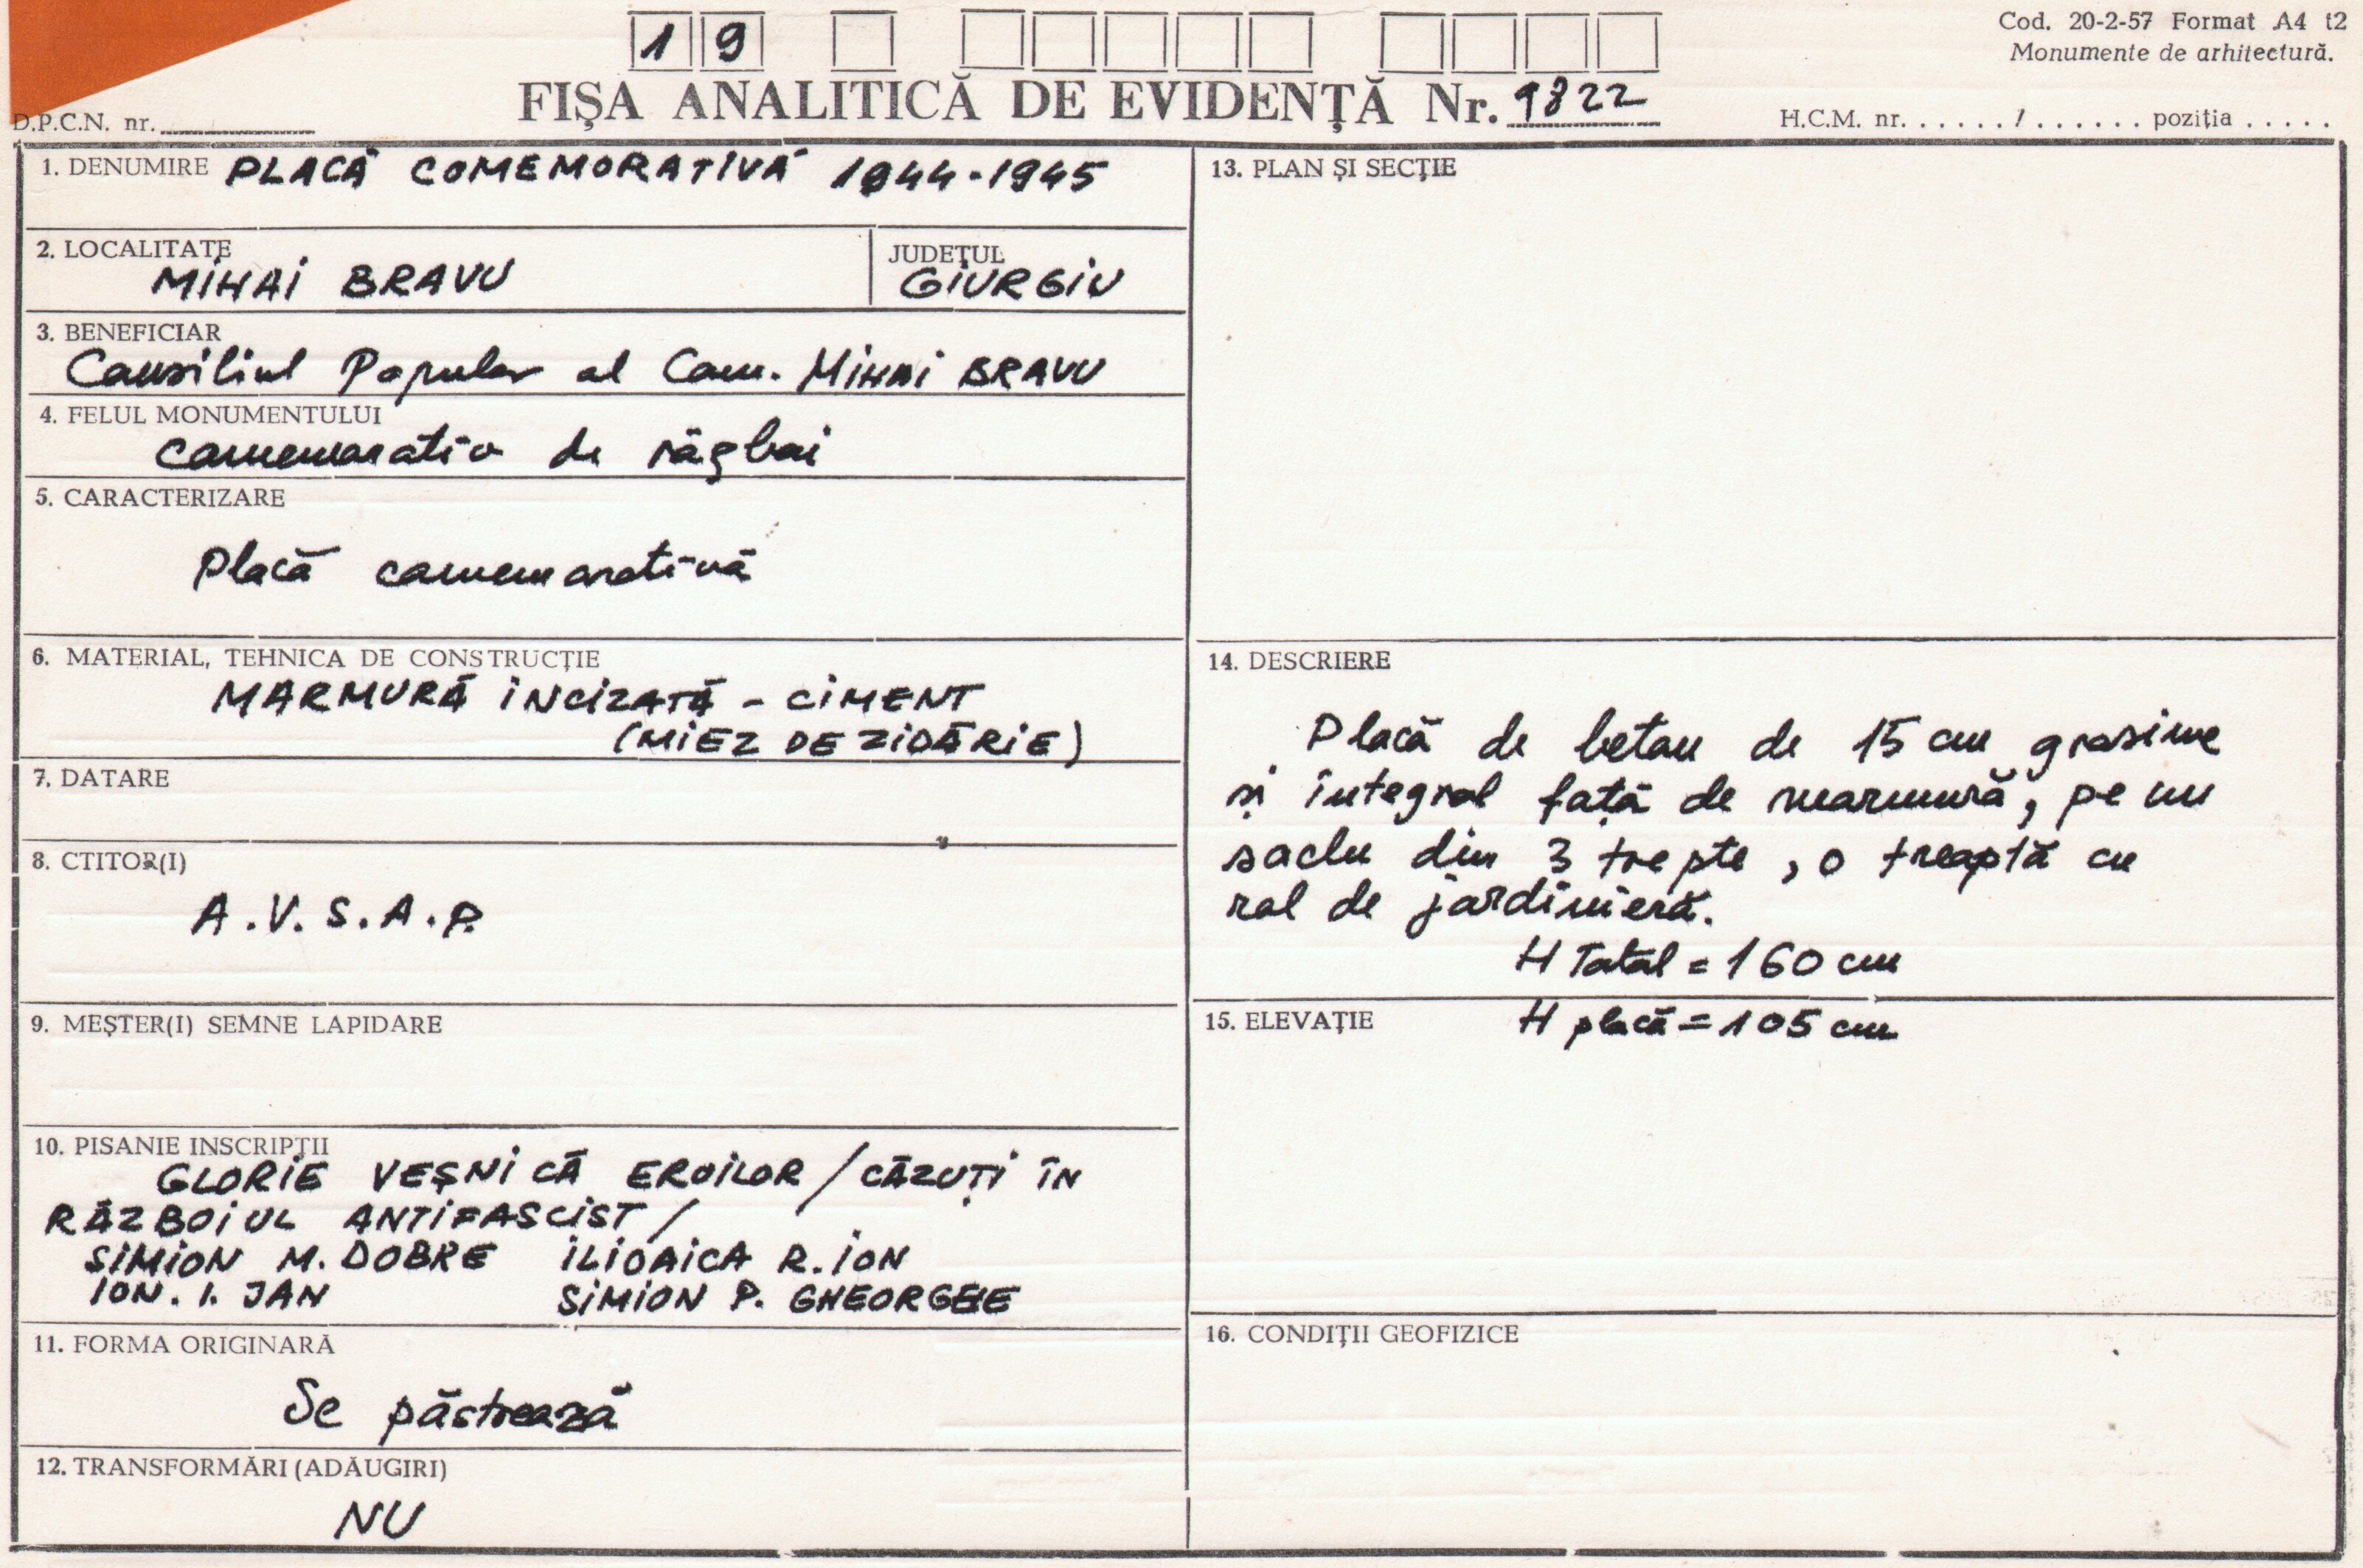 1 9
Cod. 20-2-57 Format A4 t2
Monumente de arhitectură.
D.P.C.N. nr.
FIȘA ANALITICĂ DE EVIDENȚĂ Nr. 9822
H.C.M. nr. ...... / ...... poziția .....
1. DENUMIRE PLACĂ COMEMORATIVĂ 1944-1945
2. LOCALITATE
MIHAI BRAVU
JUDEȚUL
GIURGIU
3. BENEFICIAR
Consiliul Popular al Com. MIHAI BRAVU
4. FELUL MONUMENTULUI
comemorativ de răgboi
5. CARACTERIZARE
Placă comemorativă
6. MATERIAL, TEHNICA DE CONSTRUCȚIE
MARMURĂ INCIZATĂ - CIMENT
(MIEZ DE ZIDĂRIE)
7. DATARE
8. CTITOR(I)
A.V.S.A.P.
9. MEȘTER(I) SEMNE LAPIDARE
10. PISANIE INSCRIPȚII
GLORIE VEȘNICĂ EROILOR / CĂZUȚI ÎN
RĂZBOIUL ANTIFASCIST /
SIMION M. DOBRE ILIOAICA R. ION
ION. I. JAN SIMION P. GHEORGHE
11. FORMA ORIGINARĂ
Se păstrează
12. TRANSFORMĂRI (ADĂUGIRI)
NU
13. PLAN ȘI SECȚIE
14. DESCRIERE
Placă de beton de 15 cm grosime
și integral față de marmură, pe un
soclu din 3 trepte, o treaptă cu
rol de jardinieră.
H Total = 160 cm
15. ELEVAȚIE H placă = 105 cm
16. CONDIȚII GEOFIZICE